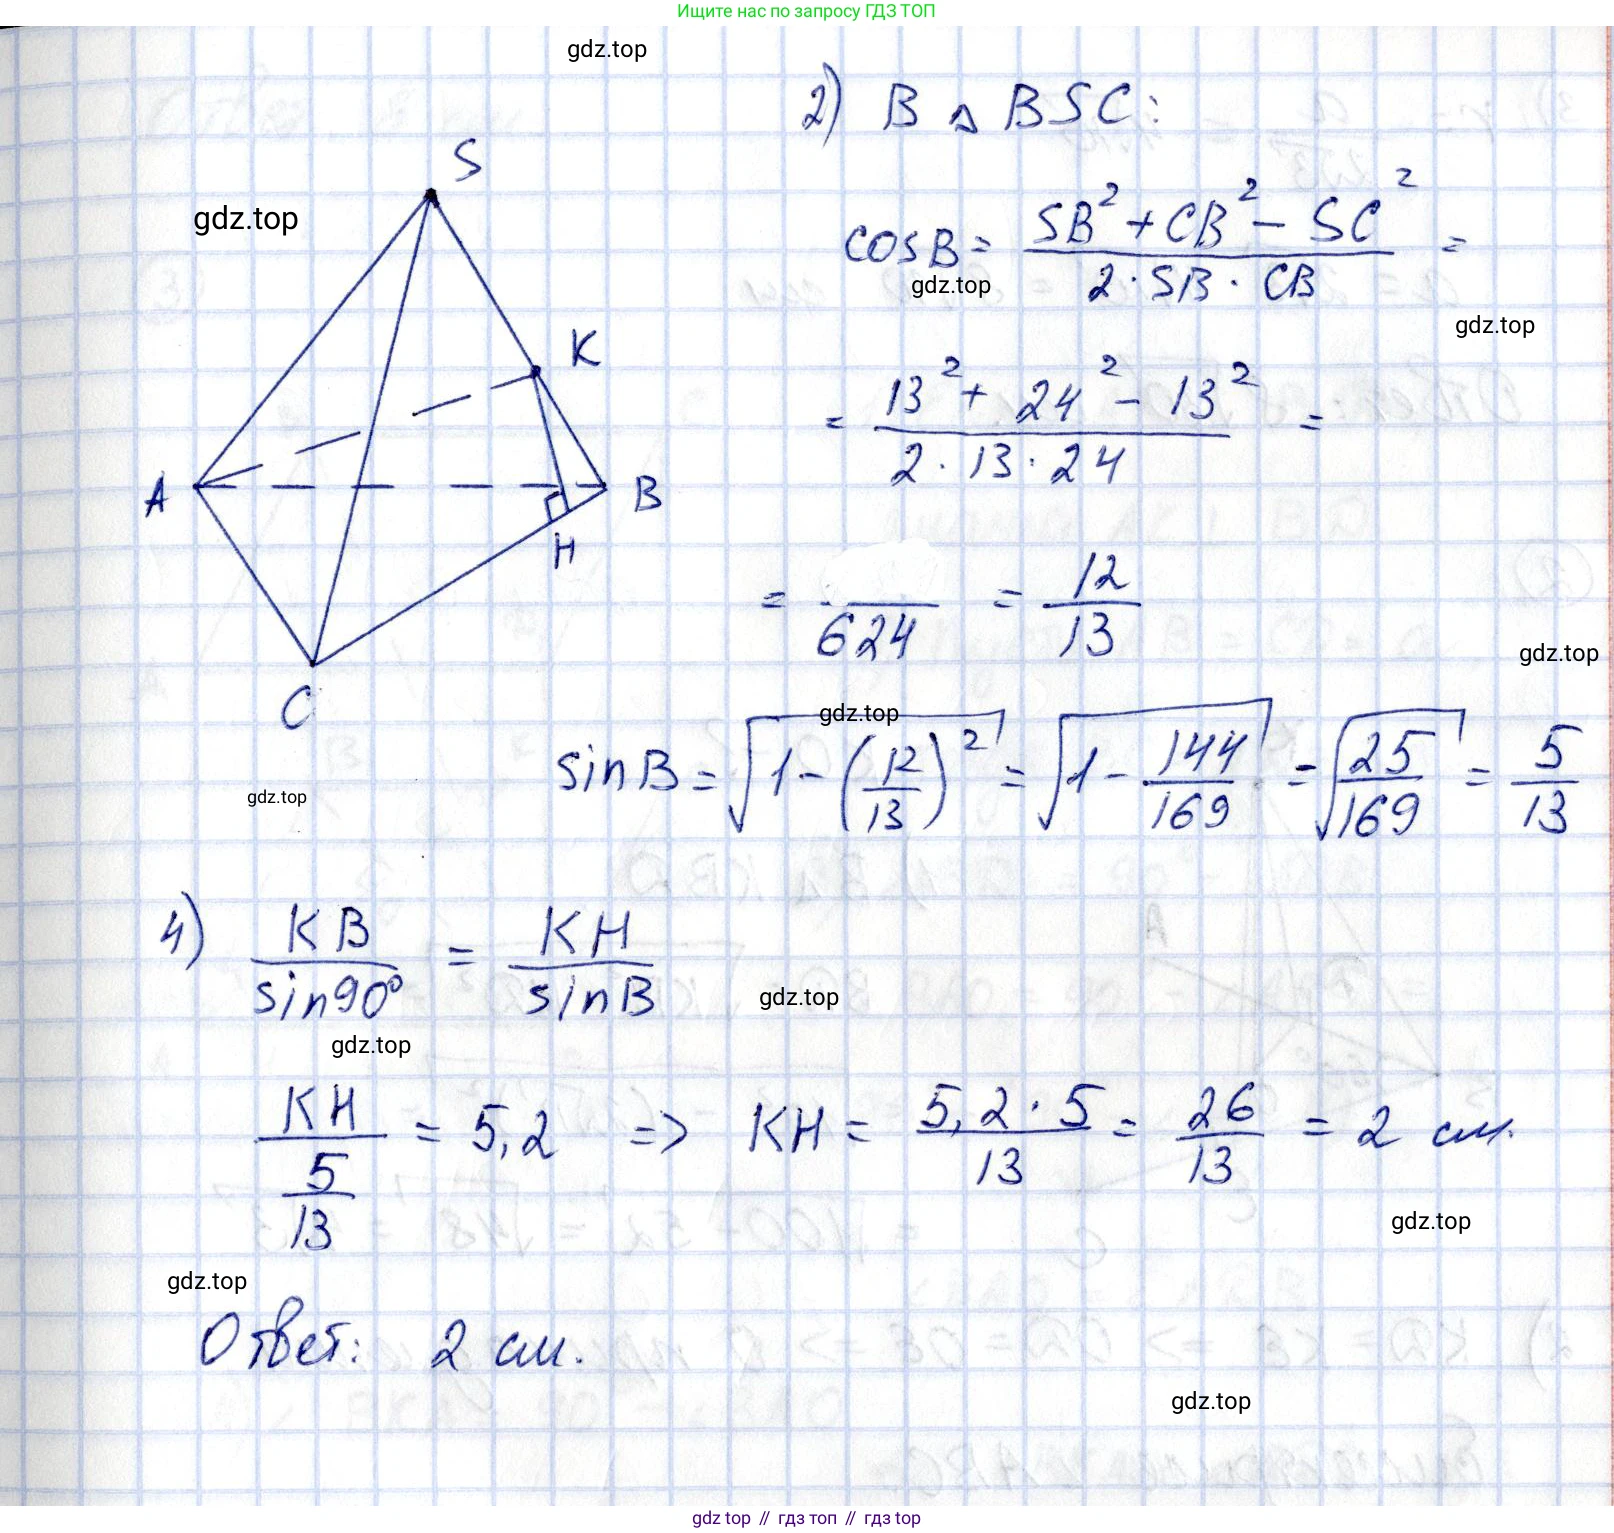 Ищите нас по запросу ГДЗ ТОП
gdz.top
2) В △ BSC:
S
gdz.top
cosB = (SB² + CB² − SC²) / (2 · SB · CB) =
gdz.top
gdz.top
K
= (13² + 24² − 13²) / (2 · 13 · 24) =
A
B
H
= / 624 = 12/13
gdz.top
C
gdz.top
sinB = √(1 − (12/13)²) = √(1 − 144/169) = √(25/169) = 5/13
gdz.top
4) KB / sin90° = KH / sinB
gdz.top
gdz.top
KH / (5/13) = 5,2 => KH = (5,2 · 5) / 13 = 26/13 = 2 см.
gdz.top
gdz.top
Ответ: 2 см.
gdz.top
gdz.top // гдз топ // гдз top